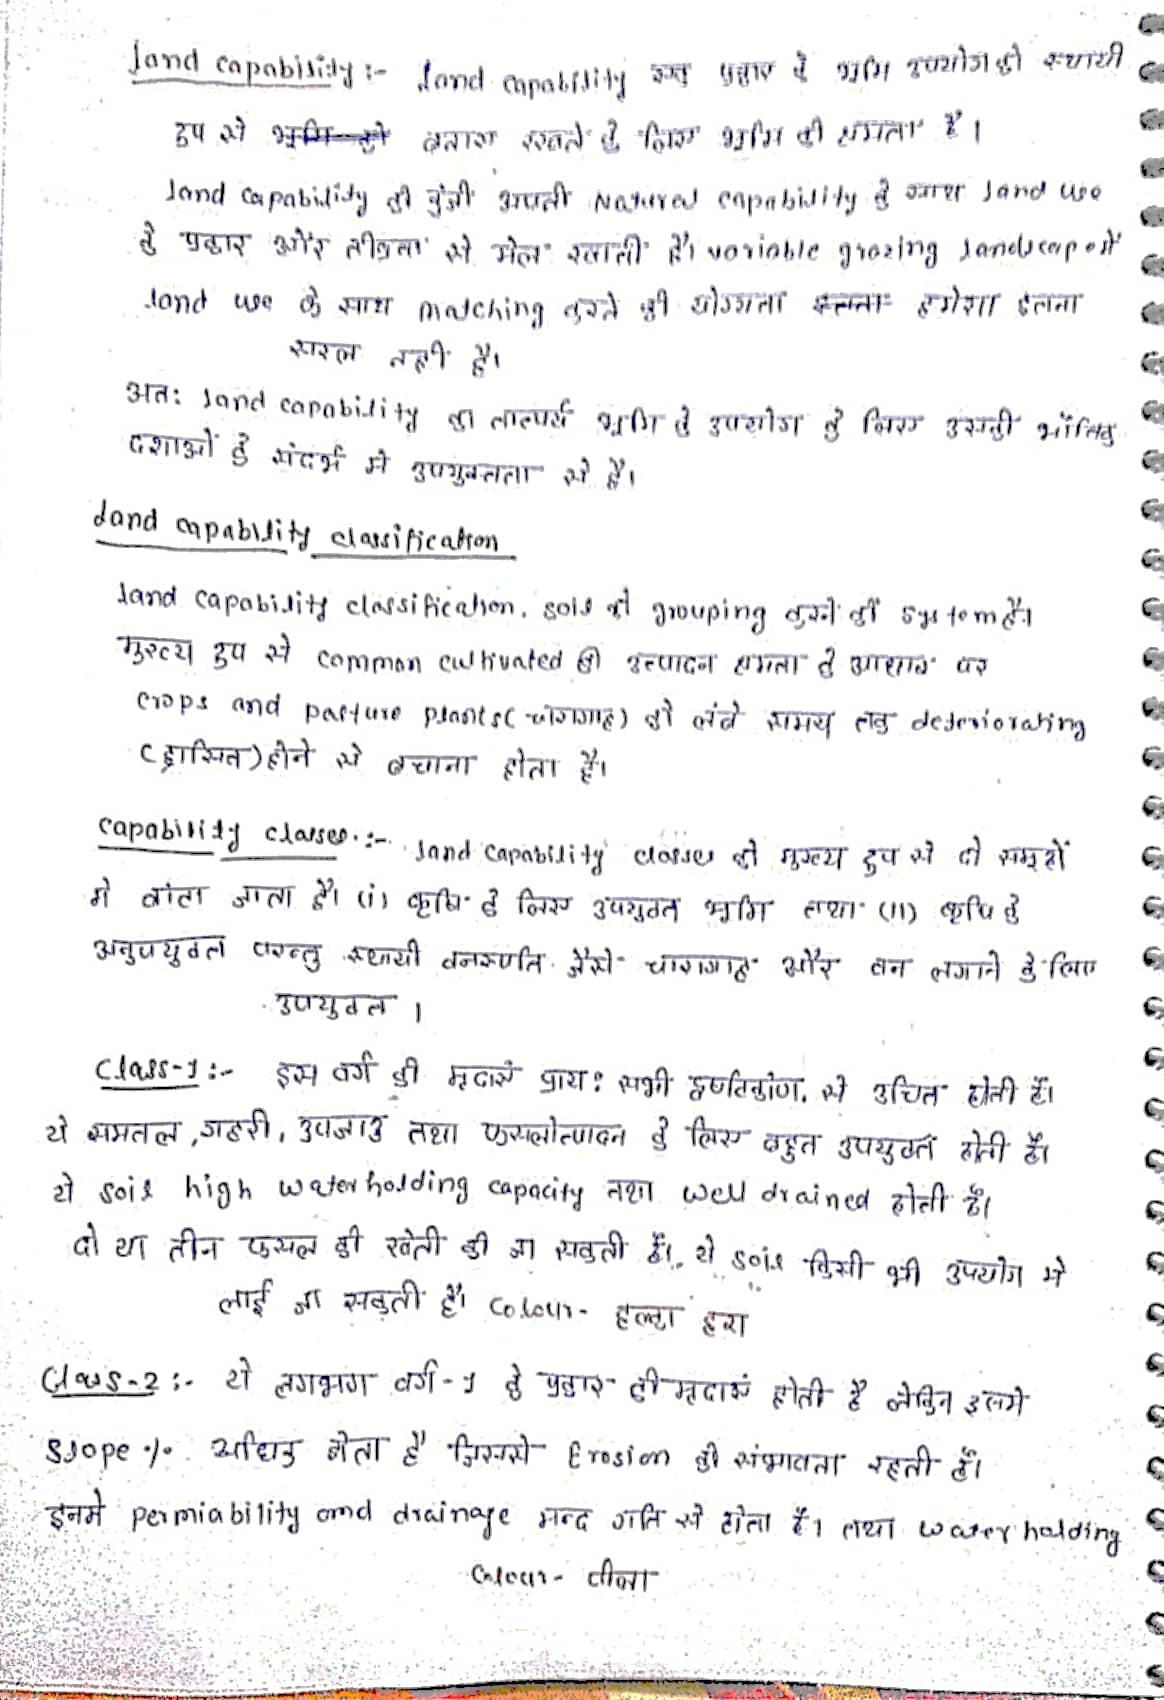 Land capability :- Land capability एक प्रकार से भूमि उपयोग को स्थायी
रूप से भूमि को बनाए रखने के लिए भूमि की क्षमता है।
land capability की कुंजी अपनी Natural capability के साथ land use
के प्रकार और तीव्रता से मेल खाती है। variable grazing landscape में
land use के साथ matching करने की योग्यता हमेशा इतना
सरल नहीं है।
अतः land capability का तात्पर्य भूमि के उपयोग के लिए उसकी भौतिक
दशाओं के संदर्भ में उपयुक्तता से है।
Land capability classification
land capability classification, soil को grouping करने की system है।
मुख्य रूप से common cultivated की उत्पादन क्षमता के आधार पर
crops and pasture plants (चारागाह) को लंबे समय तक deteriorating
(ह्रासित) होने से बचाना होता है।
Capability classes :- Land capability classes को मुख्य रूप से दो समूहों
में बांटा जाता है। (i) कृषि के लिए उपयुक्त भूमि तथा (ii) कृषि के
अनुपयुक्त परन्तु स्थायी वनस्पति जैसे चारागाह और वन लगाने के लिए
उपयुक्त ।
Class-1 :- इस वर्ग की मृदाएं प्रायः सभी दृष्टिकोण से उचित होती हैं।
ये समतल, गहरी, उपजाउ तथा फसलोत्पादन के लिए बहुत उपयुक्त होती हैं।
ये soil high water holding capacity तथा well drained होती हैं।
दो या तीन फसल की खेती की जा सकती हैं। ये soil किसी भी उपयोग में
लाई जा सकती है। Colour- हल्का हरा
Class-2 :- ये लगभग वर्ग-1 के प्रकार की मृदाएं होती है लेकिन इसमें
slope % अधिक होता है जिससे Erosion की संभावना रहती हैं।
इनमें permiability and drainage मन्द गति से होता है। तथा water holding
Colour- पीला